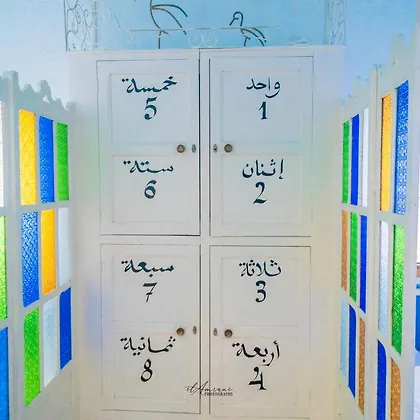 واحد
1
إثنان
2
ثلاثة
3
أربعة
4
خمسة
5
ستة
6
سبعة
7
ثمانية
8
elAmrani
PHOTOGRAPHY